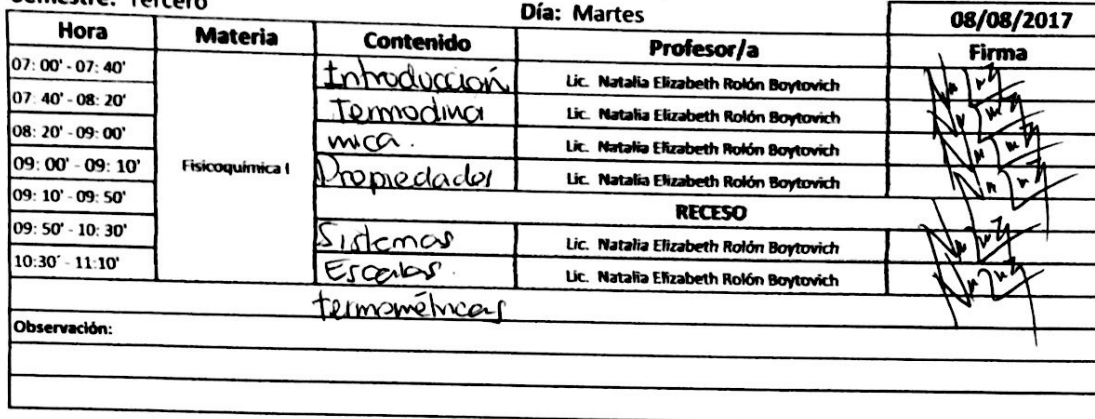 Semestre: Tercero Día: Martes 08/08/2017
Hora Materia Contenido Profesor/a Firma
07: 00' - 07: 40' Introducción Lic. Natalia Elizabeth Rolón Boytovich
07: 40' - 08: 20' Termodiná Lic. Natalia Elizabeth Rolón Boytovich
08: 20' - 09: 00' mica. Lic. Natalia Elizabeth Rolón Boytovich
09: 00' - 09: 10' Fisicoquímica I Propiedades Lic. Natalia Elizabeth Rolón Boytovich
09: 10' - 09: 50' RECESO
09: 50' - 10: 30' Sistemas Lic. Natalia Elizabeth Rolón Boytovich
10:30' - 11:10' Escalas. Lic. Natalia Elizabeth Rolón Boytovich
termométricas
Observación: